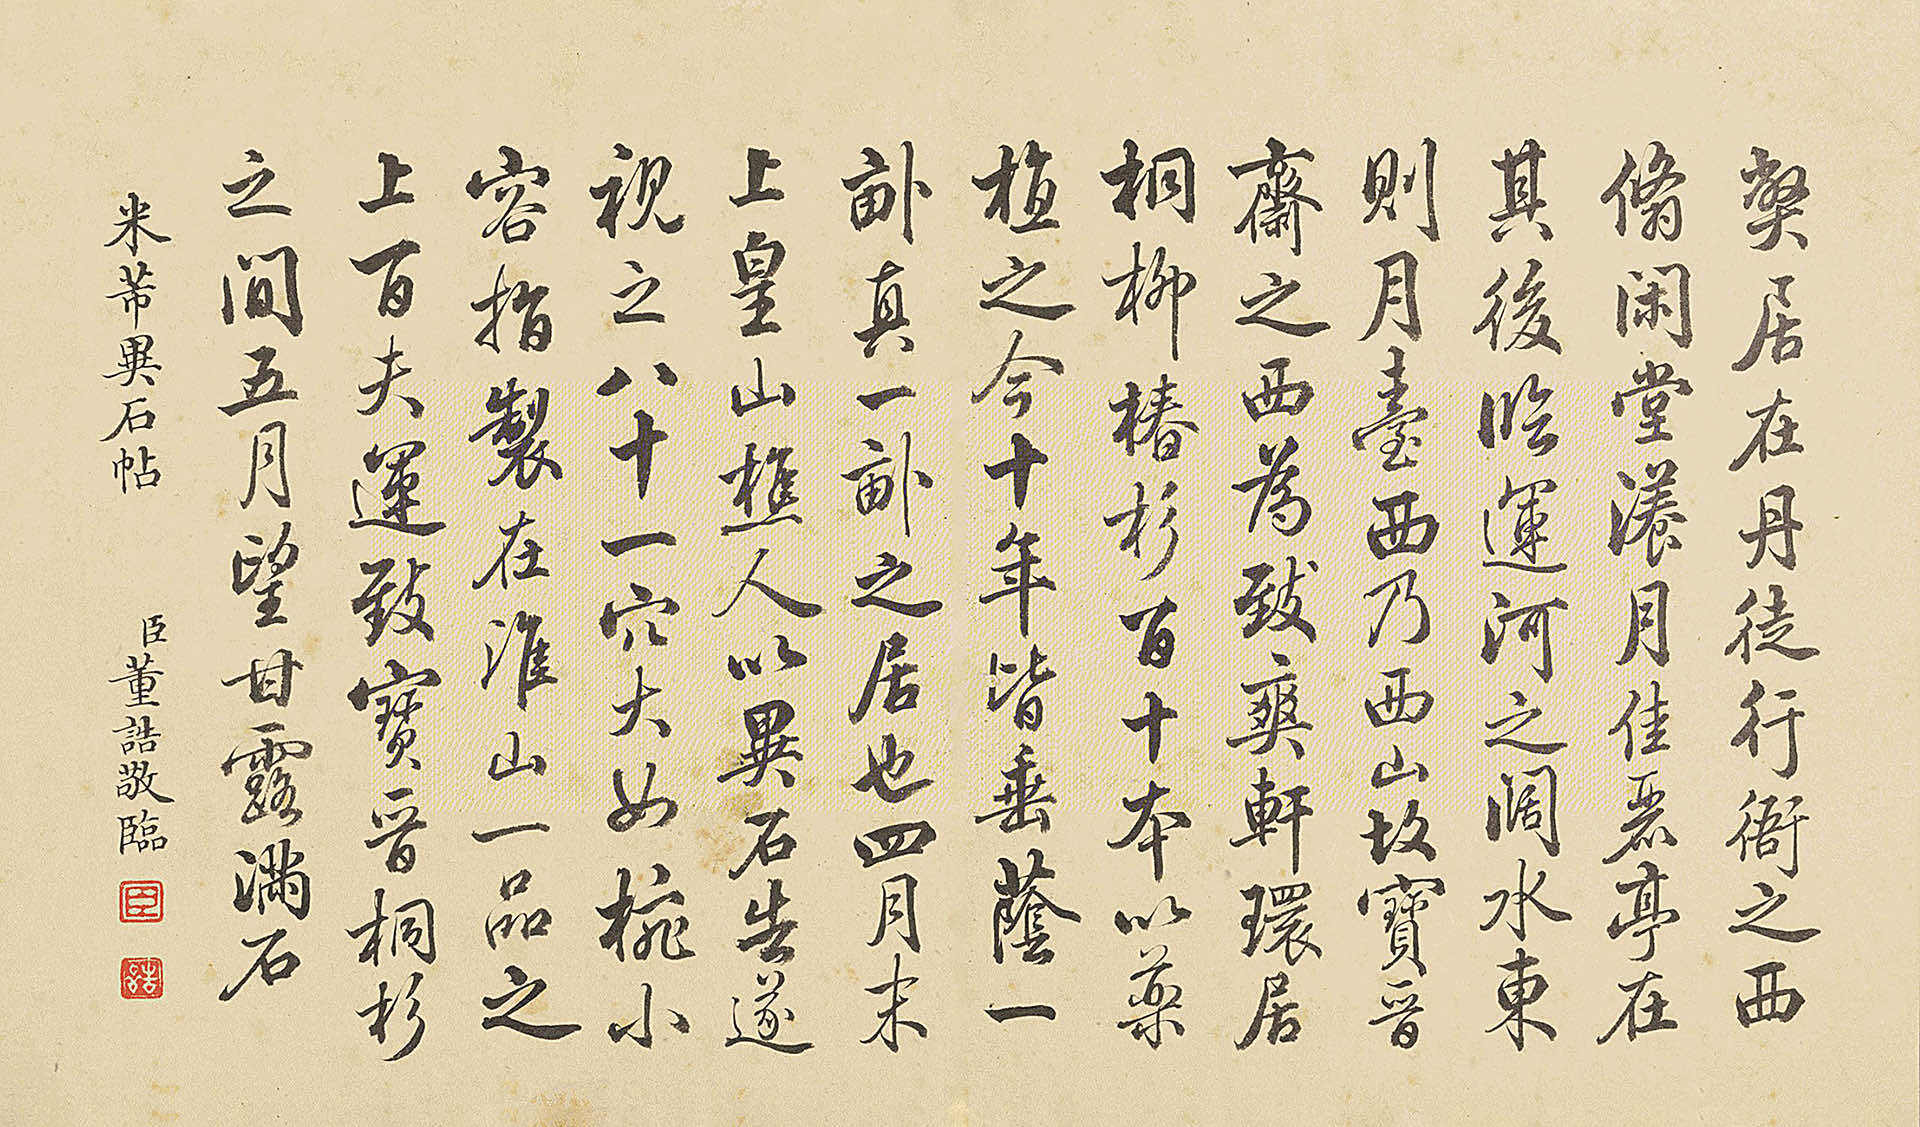 弊居在丹徒行衙之西
翛閑堂漾月佳麗亭在
其後臨運河之闊水東
則月臺西乃西山故寳晉
齋之西為致爽軒環居
桐柳椿杉百十本以藥
植之今十年皆垂蔭一
畝真一畝之居也四月末
上皇山樵人以異石告遂
視之八十一穴大如椀小
容指製在淮山一品之
上百夫運致寳晉桐杉
之間五月望甘露滿石
米芾異石帖
臣董誥敬臨
臣
誥